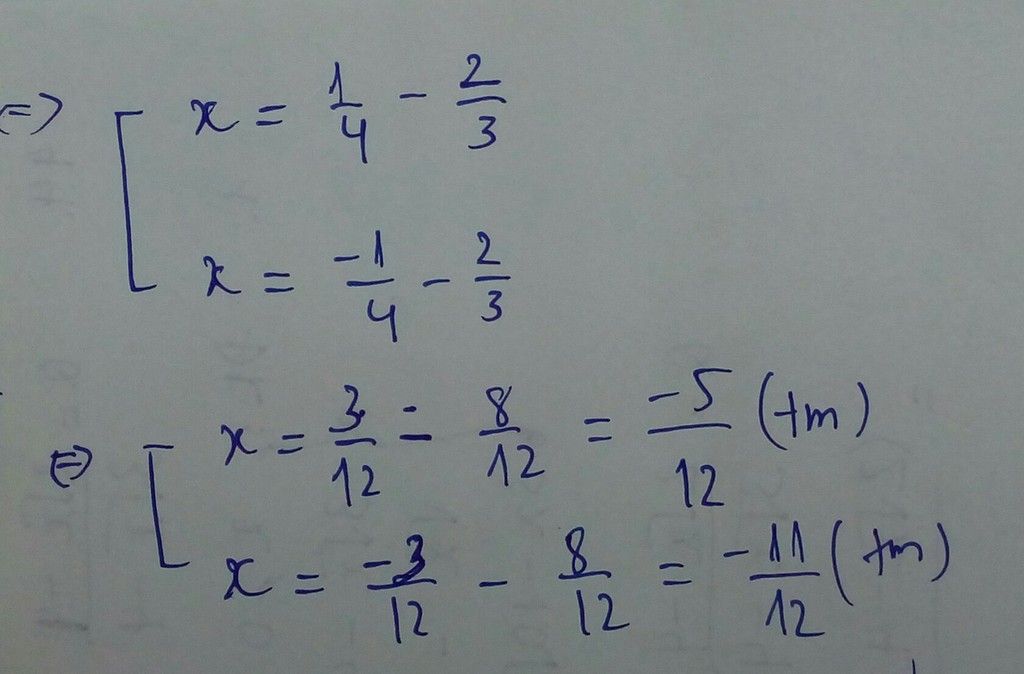 => [ x = 1/4 - 2/3
x = -1/4 - 2/3
<=> [ x = 3/12 - 8/12 = -5/12 (tm)
x = -3/12 - 8/12 = -11/12 (tm)